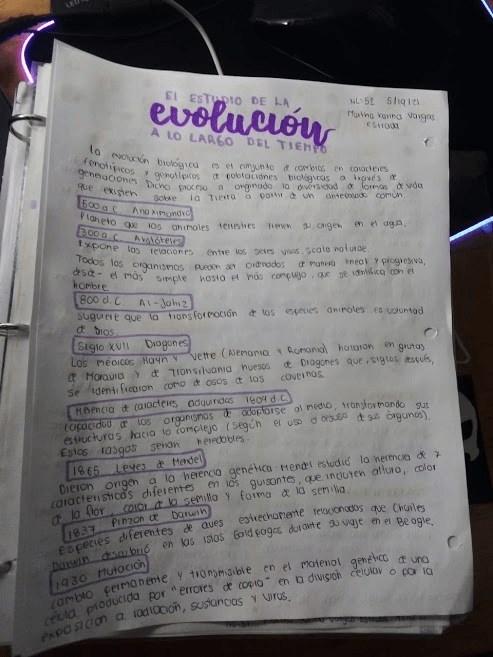 El ESTUDIO DE LA
evolución
A LO LARGO DEL TIEMPO
NL-52 5/09/21
Martha Karina Vargas
Estrada
La evolución biológica es el conjunto de cambios en caracteres
fenotípicos y genotípicos de poblaciones biológicas a través de
generaciones. Dicho proceso a originado la diversidad de formas de vida
que existen sobre la Tierra a partir de un antepasado común.
600 a.C. Anaximandro
Planteo que los animales terrestres tienen su origen en el agua.
300 a.C. Aristóteles
Expone las relaciones entre los seres vivos, scala naturae.
Todos los organismos pueden ser ordenados de manera lineal y progresiva,
desde el más simple hasta el más complejo, que se identifica con el
hombre.
800 d.C. Al-Jahiz
Sugiere que la transformación de las especies animales es voluntad
de Dios.
Siglo XVII Dragones
Los médicos Hayn y Vette (Alemania y Romania) hallaron en grutas
de Moravia y de Transilvania huesos de Dragones que, siglos después,
se identificaron como de osos de las cavernas.
Herencia de caracteres adquiridos 1809 d.C
Capacidad de los organismos de adaptarse al medio, transformando sus
estructuras hacia lo complejo (según el uso o desuso de sus órganos).
Estos rasgos serían heredables.
1865 Leyes de Mendel
Dieron origen a la herencia genética. Mendel estudió la herencia de 7
características diferentes en los guisantes, que incluyen altura, color
de la flor, color de la semilla y forma de la semilla.
1837 Pinzón de Darwin
Especies diferentes de aves estrechamente relacionados que Charles
Darwin descubrió en las Islas Galápagos durante su viaje en el Beagle.
1930 Mutación
Cambio permanente y transmisible en el material genético de una
célula, producida por "errores de copia" en la división celular o por la
exposición a radiación, sustancias y virus.